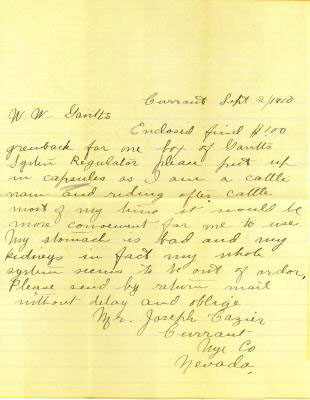 Currant Sept 2/1910
W. W. Gantts
Enclosed find $1 00
greenback for one box of Gantts
System Regulator please put up
in capsules as I am a cattle
man and riding after cattle
most of my time it would be
more convenient for me to use
My stomach is bad and my
kidneys in fact my whole
system seems to be out of ordor.
Please send by return mail
without delay and oblige
Mr. Joseph Cazier
Currant
Nye Co
Nevada.